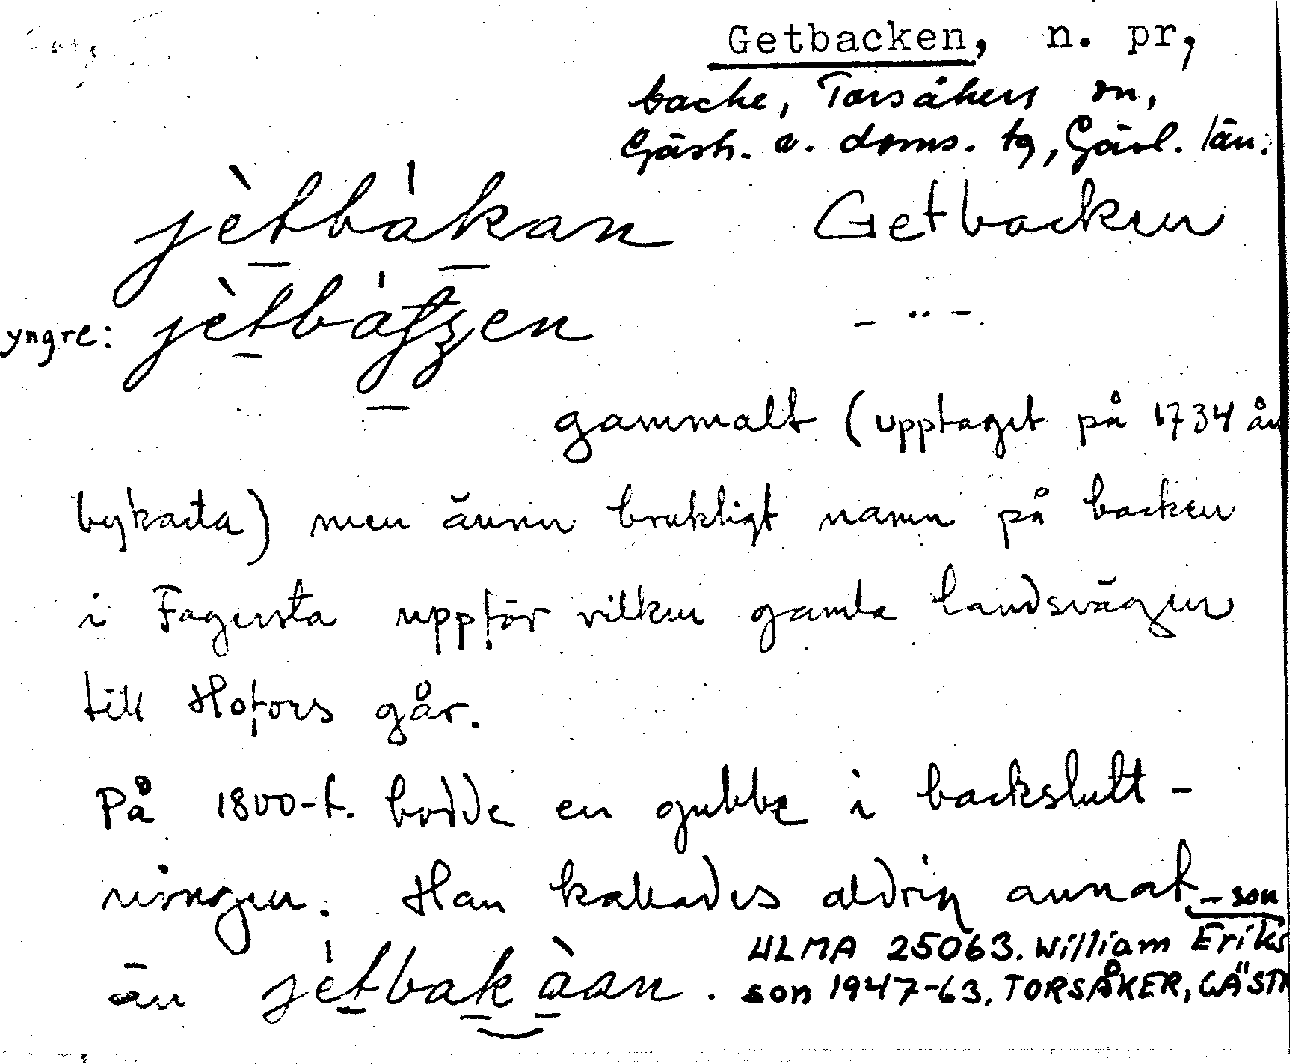 Getbacken, n. pr,
backe, Torsåkers sn,
Gästr. ö. doms. tg, Gävl. län.
jètbàkan Getbacken
yngre: jètbàtʒen - " -
gammalt (upptaget på 1734 års
bykarta) men ännu brukligt namn på backen
i Fagersta uppför vilken gamla landsvägen
till Hofors går.
På 1800-t. bodde en gubbe i backslutt-
ningen. Han kallades aldrig annat
än jètbakàan.
ULMA 25063. William Eriks-
son 1947-63, TORSÅKER, GÄSTR